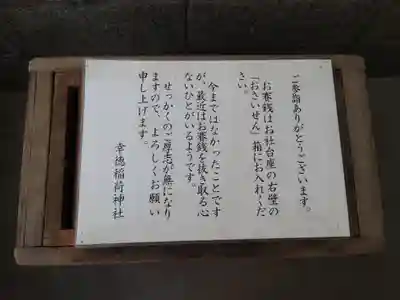 ご参詣ありがとうございます。
お賽銭はお社台座の右壁の
「おさいせん」箱にお入れくだ
さい。
今まではなかったことです
が、最近はお賽銭を抜き取る心
ないひとがいるようです。
せっかくのご厚志が無になり
ますので、よろしくお願い
申し上げます。
幸徳稲荷神社